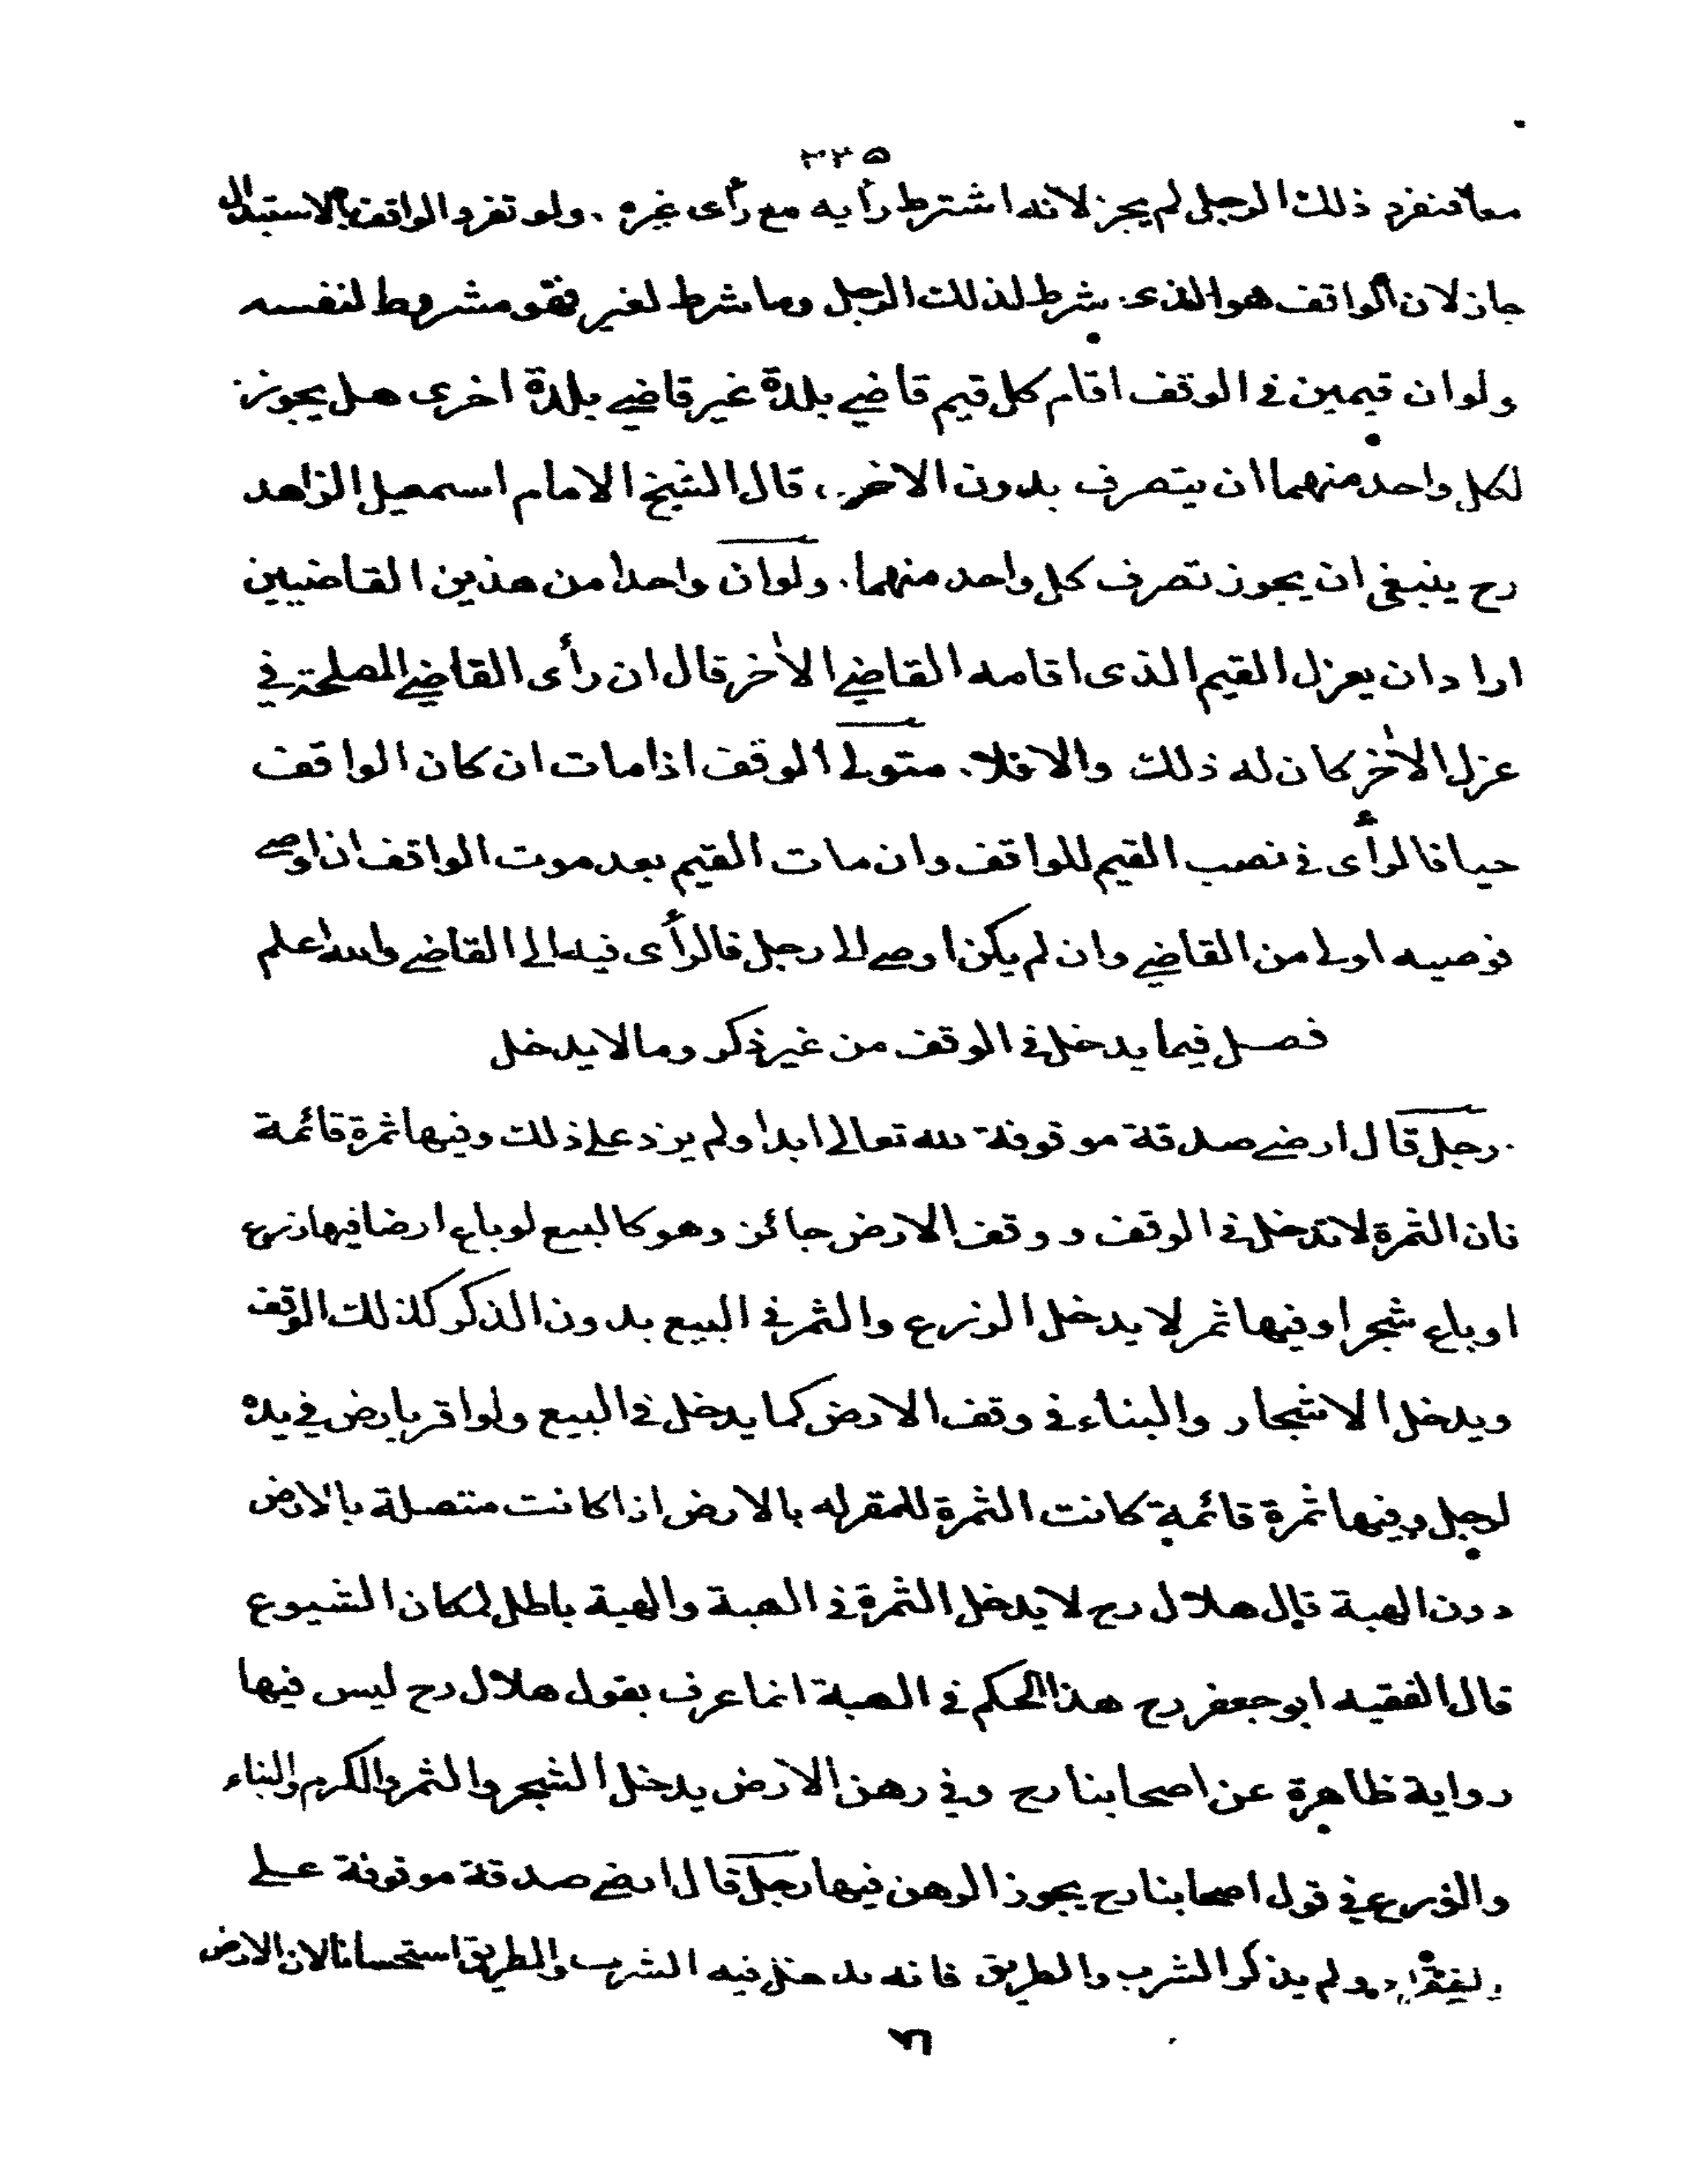 ٢٢٥
معا فتفرد ذلك الرجل لم يجز لانه اشترط رأيه مع رأى غيره . ولو تفرد الواقف بالاستبدال
جاز لان الواقف هو الذى شرط لذلك الرجل وما شرط لغير فهو مشروط لنفسه
ولو ان قيمين في الوقف اقام كل قيم قاضي بلدة غير قاضي بلدة اخرى هل يجوز
لكل واحد منهما ان يتصرف بدون الاخر ، قال الشيخ الامام اسمعيل الزاهد
رح ينبغي ان يجوز تصرف كل واحد منهما . ولو ان واحدا من هذين القاضيين
اراد ان يعزل القيم الذى اقامه القاضي الاٰخر قال ان رأى القاضي المصلحة في
عزل الاٰخر كان له ذلك والا فلا . متولى الوقف اذا مات ان كان الواقف
حيا فالرأى في نصب القيم للواقف وان مات القيم بعد موت الواقف ان اوصى
فوصيه اولى من القاضي وان لم يكن اوصى الى رجل فالرأى فيه الى القاضي والله اعلم
فصل فيما يدخل في الوقف من غير ذكر وما لا يدخل
. رجل قال ارضي صدقة موقوفة لله تعالى ابدا ولم يزد على ذلك وفيها ثمرة قائمة
فان الثمرة لا تدخل في الوقف و وقف الارض جائز وهو كالبيع لو باع ارضا فيها زرع
او باع شجرا وفيها ثمر لا يدخل الزرع والثمر في البيع بدون الذكر كذلك الوقف
ويدخل الاشجار والبناء في وقف الارض كما يدخل في البيع ولو اقر بارض في يده
لرجل وفيها ثمرة قائمة كانت الثمرة للمقر له بالارض اذا كانت متصلة بالارض
دون الهبة قال هلال رح لا يدخل الثمرة في الهبة والهبة باطل لمكان الشيوع
قال الفقيه ابو جعفر رح هذا الحكم في الهبة انما عرف بقول هلال رح ليس فيها
رواية ظاهرة عن اصحابنا رح وفي رهن الارض يدخل الشجر والثمر والكرم والبناء
والزرع في قول اصحابنا رح يجوز الرهن فيها رجل قال ارضي صدقة موقوفة على
الفقراء ولم يذكر الشرب والطريق فانه يدخل فيه الشرب والطريق استحسانا لان الارض